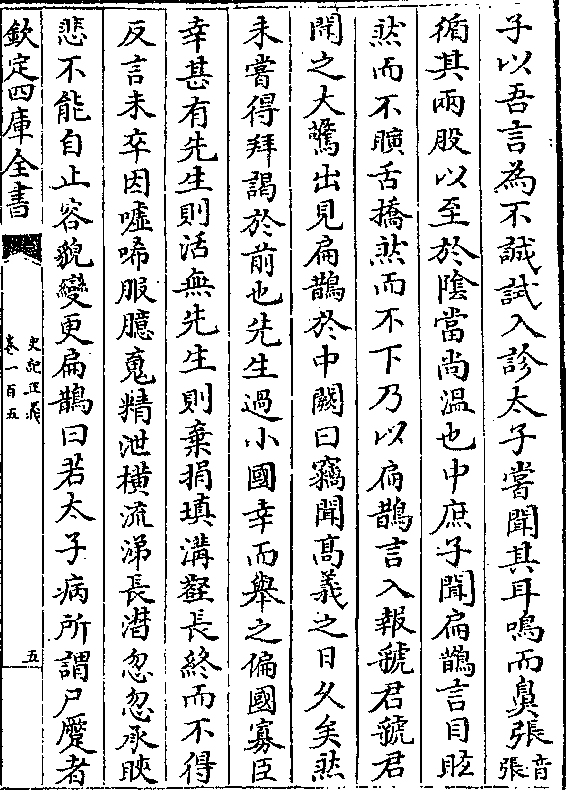 子以吾言為不誠試入診太子當聞其耳鳴而鼻張音張
循其兩股以至於陰當尚溫也中庶子聞扁鵲言目眩
然而不瞚舌撟然而不下乃以扁鵲言入報虢君虢君
聞之大驚出見扁鵲於中闕曰竊聞髙義之日久矣然
未嘗得拜謁於前也先生過小國幸而舉之偏國寡臣
幸甚有先生則活無先生則棄捐填溝壑長終而不得
反言未卒因噓唏服臆䰟精泄橫流涕長潸忽忽承䀹
悲不能自止容貌變更扁鵲曰若太子病所謂尸蹷者
欽定四庫全書
史記正義
卷一百五
五